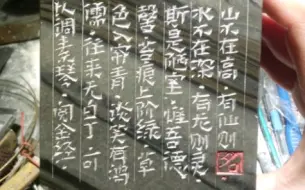 山不在高·有仙则
水不在深·有龙则灵
斯是陋室·惟吾德
馨·苔痕上阶绿·草
色入帘青·谈笑有鸿
儒·往来无白丁·可
以调素琴·阅金经